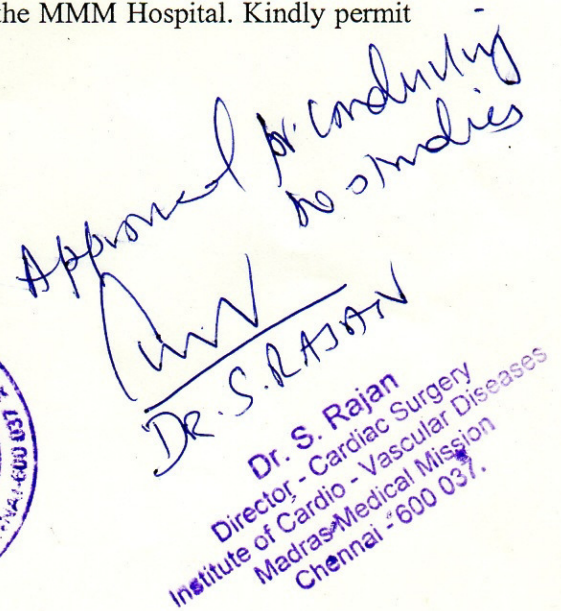 the MMM Hospital. Kindly permit
Approved for conducting
the studies
DR. S. RAJAN
Dr. S. Rajan
Director - Cardiac Surgery
Institute of Cardio - Vascular Diseases
Madras Medical Mission
Chennai - 600 037.
NAI-600 037